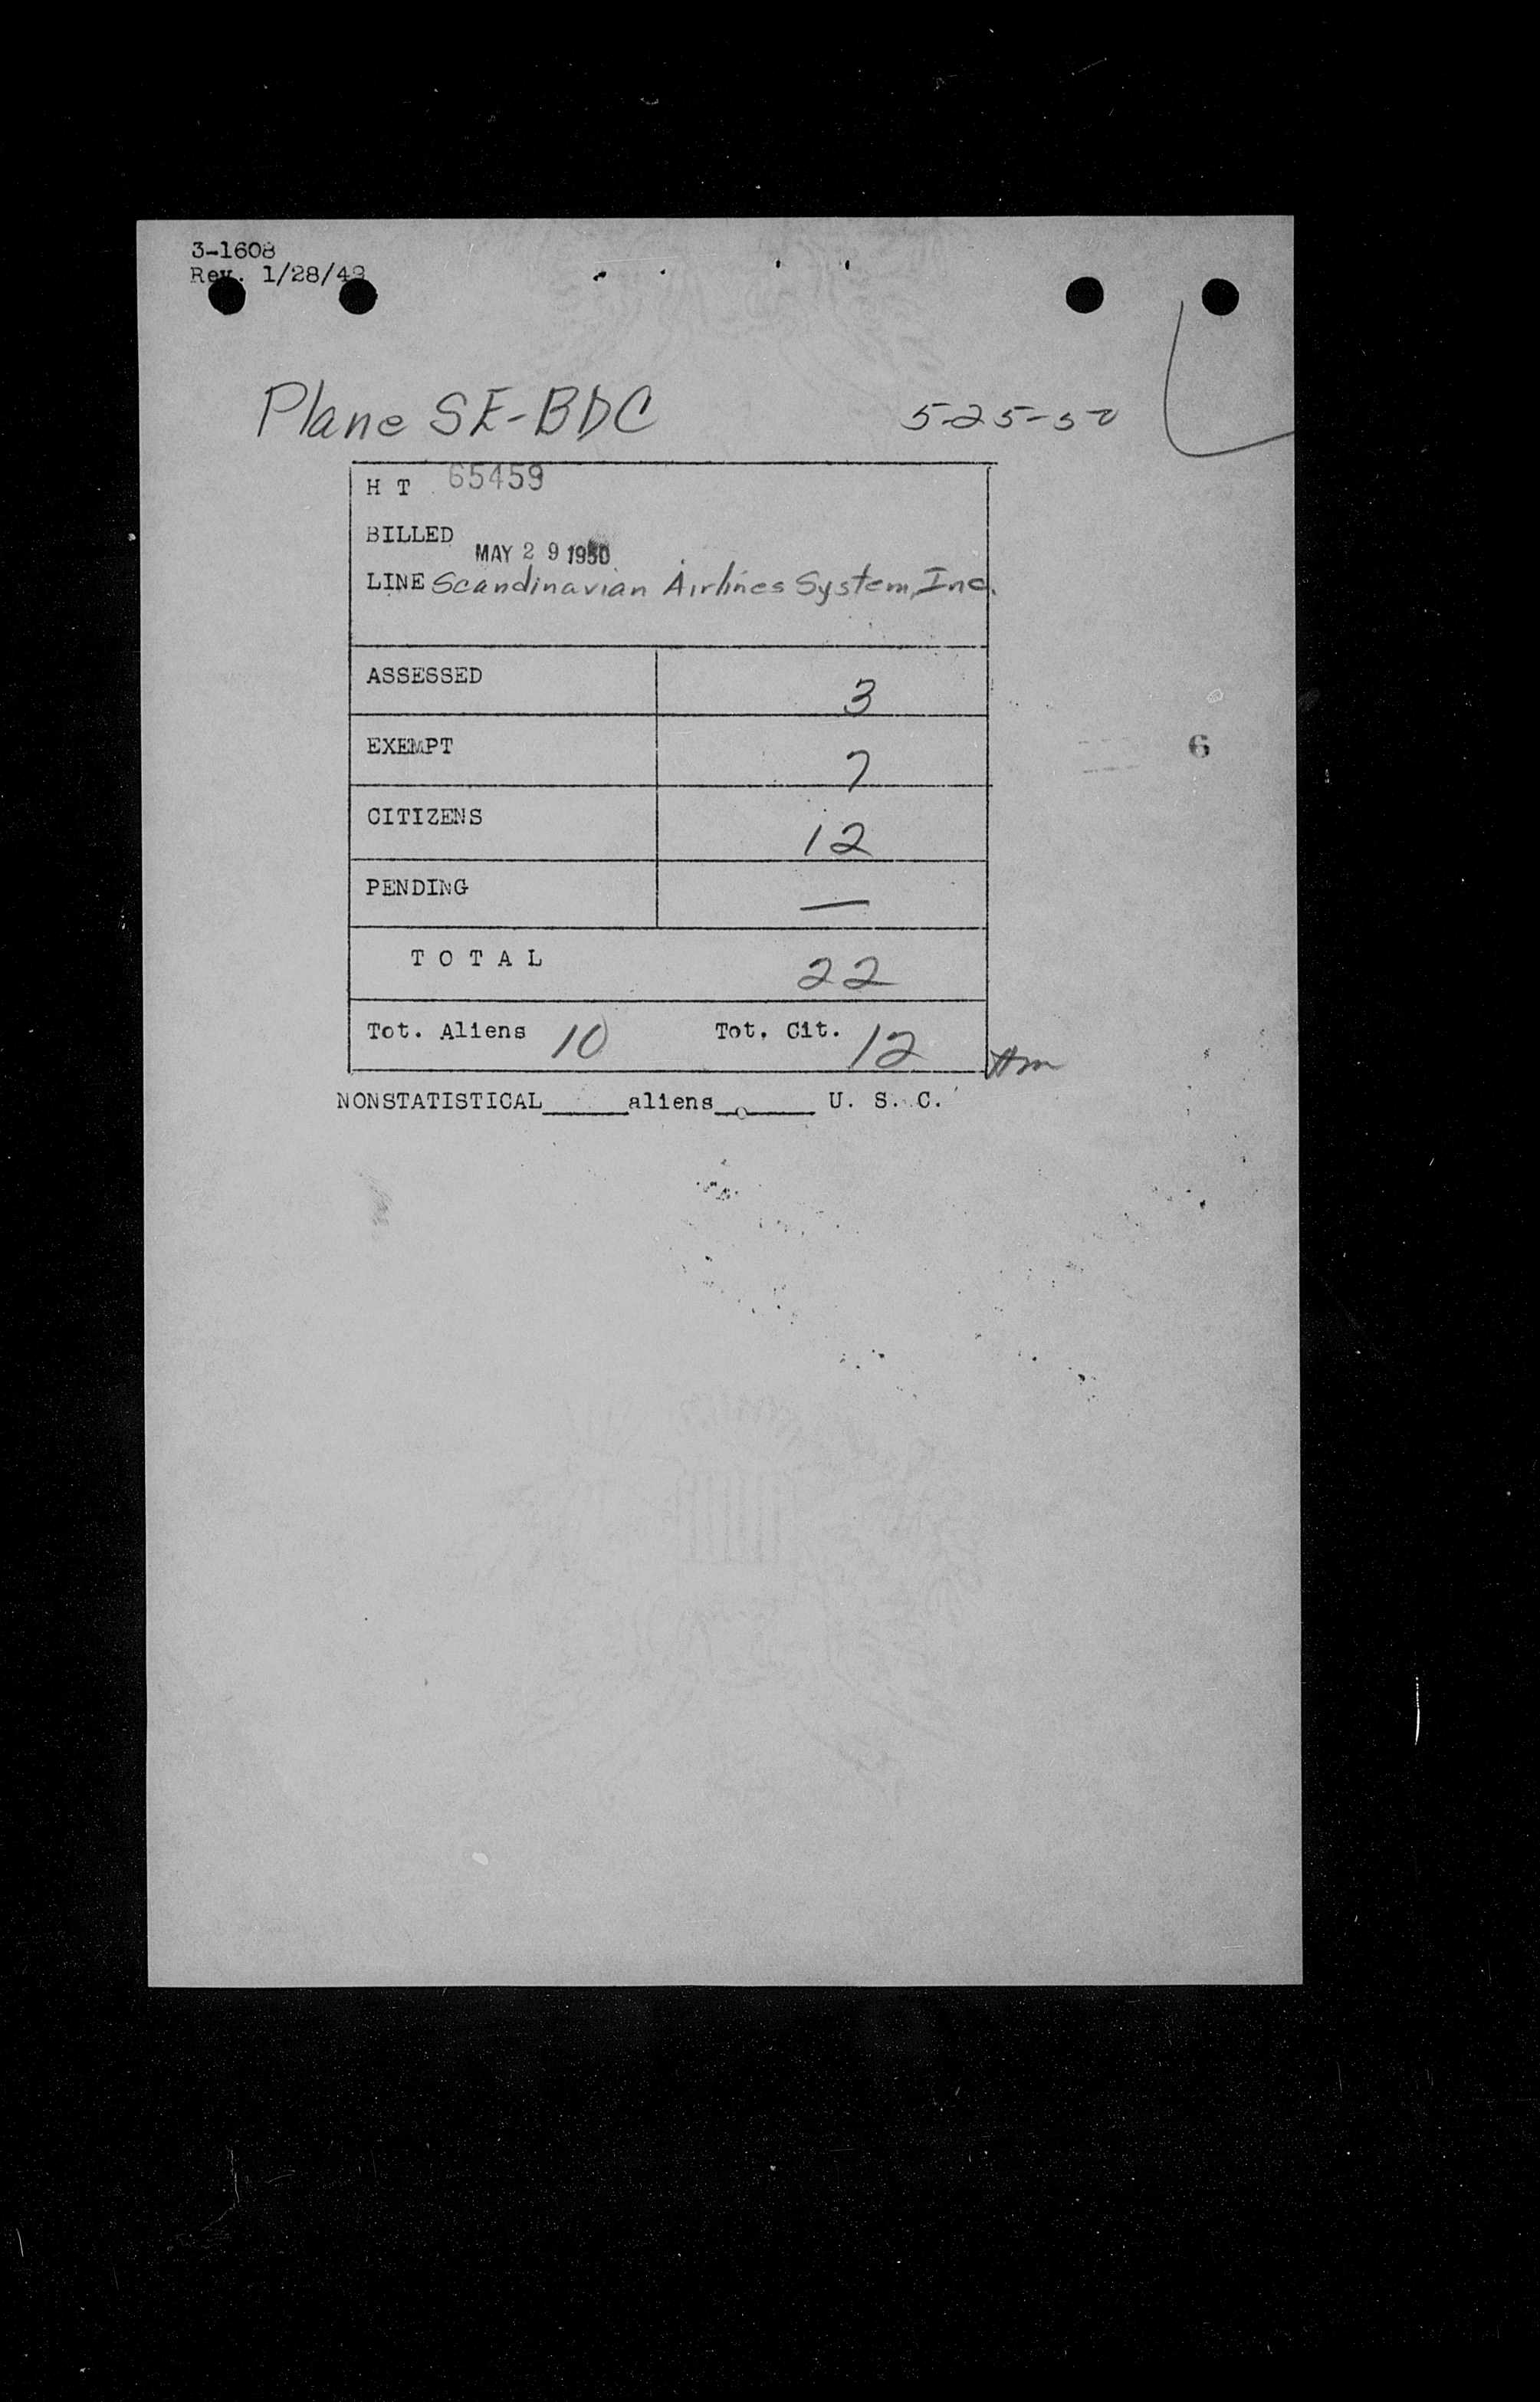 3-1608
Rev. 1/28/49
Plane SE-BDC 5-25-50
H T 65459
BILLED
MAY 29 1950
LINE Scandinavian Airlines System, Inc.
ASSESSED 3
EXEMPT 7
6
CITIZENS 12
PENDING —
T O T A L 22
Tot. Aliens 10 Tot. Cit. 12
NONSTATISTICAL______aliens_______ U. S. C.